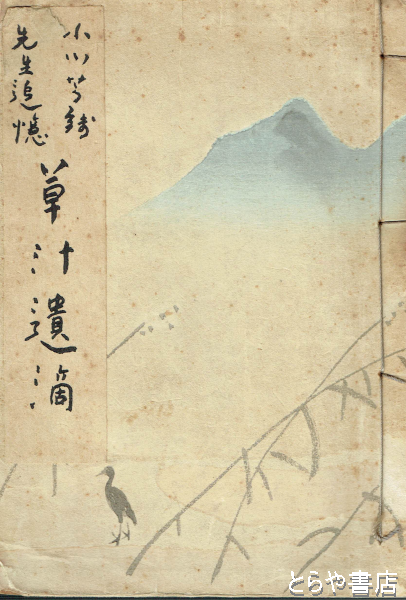 小川芋銭
先生追憶
草汁遺箇
とらや書店